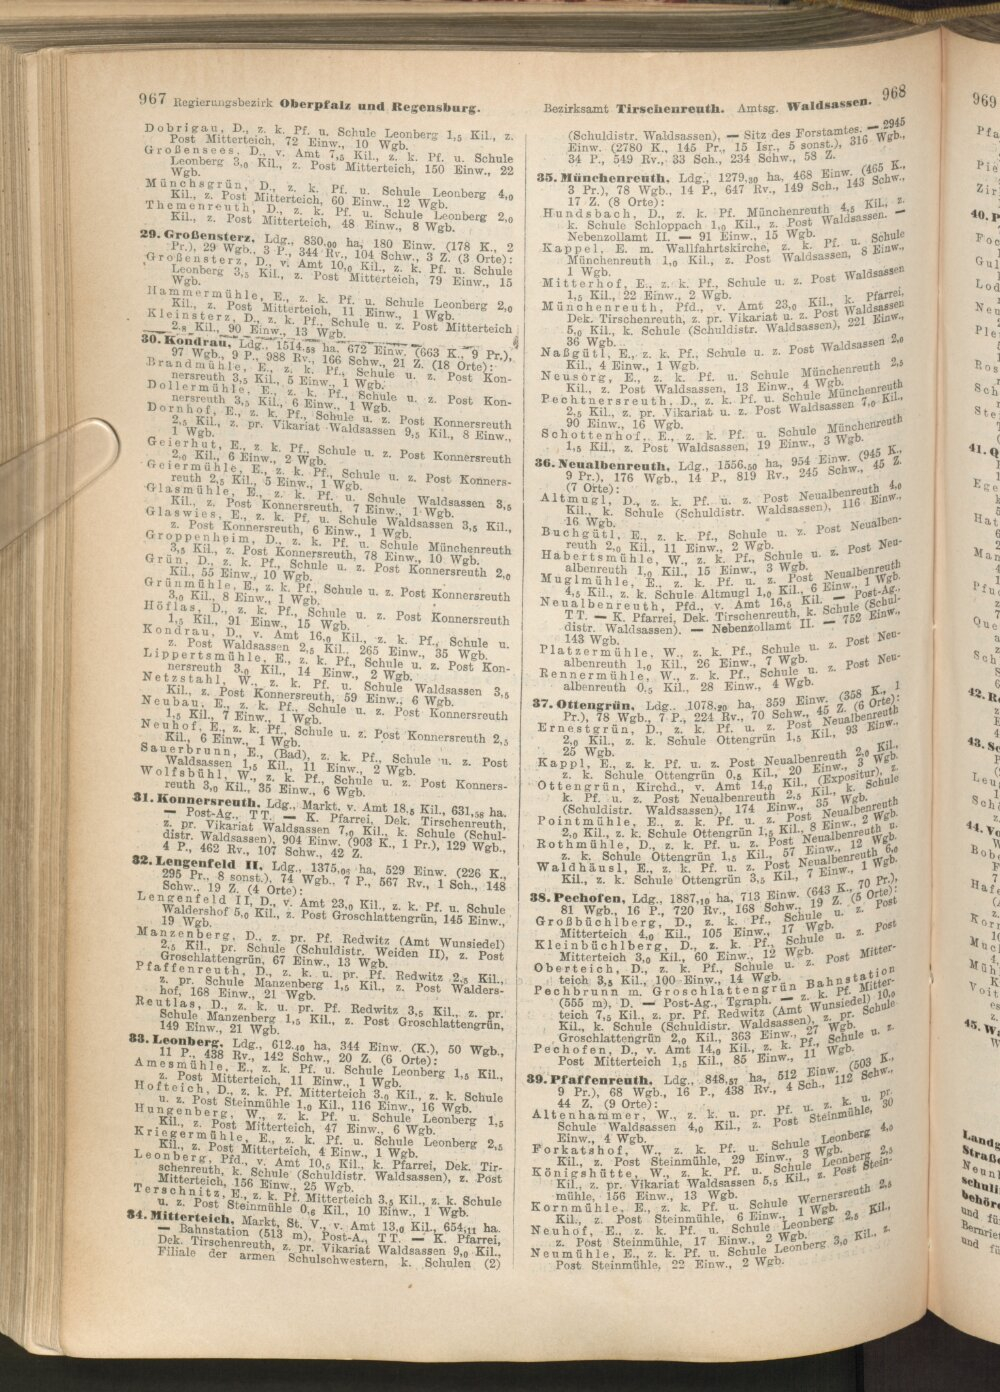 967 Regierungsbezirk Oberpfalz und Regensburg.
Dobrigau, D., z. k. Pf. u. Schule Leonberg 1,5 Kil., z.
Post Mitterteich, 72 Einw., 10 Wgb.
Großensees, D., v. Amt 7,5 Kil., z. k. Pf. u. Schule
Leonberg 3,0 Kil., z. Post Mitterteich, 150 Einw., 22
Wgb.
Münchsgrün, D., z. k. Pf. u. Schule Leonberg 4,0
Kil., z. Post Mitterteich, 60 Einw., 12 Wgb.
Themenreuth, D., z. k. Pf. u. Schule Leonberg 2,0
Kil., z. Post Mitterteich, 48 Einw., 8 Wgb.
29. Großensterz, Ldg., 830,00 ha, 180 Einw. (178 K., 2
Pr.), 29 Wgb., 3 P., 344 Rv., 104 Schw., 3 Z. (3 Orte):
Großensterz, D., v. Amt 10,0 Kil., z. k. Pf. u. Schule
Leonberg 3,5 Kil., z. Post Mitterteich, 79 Einw., 15
Wgb.
Hammermühle, E., z. k. Pf. u. Schule Leonberg 2,0
Kil., z. Post Mitterteich, 11 Einw., 1 Wgb.
Kleinsterz, D., z. k. Pf., Schule u. z. Post Mitterteich
2,8 Kil., 90 Einw., 13 Wgb.
30. Kondrau, Ldg., 1514,58 ha, 672 Einw. (663 K., 9 Pr.),
97 Wgb., 9 P., 988 Rv., 166 Schw., 21 Z. (18 Orte):
Brandmühle, E., z. k. Pf., Schule u. z. Post Kon-
nersreuth 3,5 Kil., 5 Einw., 1 Wgb.
Dollermühle, E., z. k. Pf., Schule u. z. Post Kon-
nersreuth 3,5 Kil., 6 Einw., 1 Wgb.
Dornhof, E., z. k. Pf., Schule u. z. Post Konnersreuth
2,5 Kil., z. pr. Vikariat Waldsassen 9,5 Kil., 8 Einw.,
1 Wgb.
Geierhut, E., z. k. Pf., Schule u. z. Post Konnersreuth
2,0 Kil., 6 Einw., 2 Wgb.
Geiermühle, E., z. k. Pf., Schule u. z. Post Konners-
reuth 2,5 Kil., 5 Einw., 1 Wgb.
Glasmühle, E., z. k. Pf. u. Schule Waldsassen 3,5
Kil., z. Post Konnersreuth, 7 Einw., 1 Wgb.
Glaswies, E., z. k. Pf. u. Schule Waldsassen 3,5 Kil.,
z. Post Konnersreuth, 6 Einw., 1 Wgb.
Groppenheim, D., z. k. Pf. u. Schule Münchenreuth
3,5 Kil., z. Post Konnersreuth, 78 Einw., 10 Wgb.
Grün, D., z. k. Pf., Schule u. z. Post Konnersreuth 2,0
Kil., 55 Einw., 10 Wgb.
Grünmühle, E., z. k. Pf., Schule u. z. Post Konnersreuth
3,0 Kil., 8 Einw., 1 Wgb.
Höflas, D., z. k. Pf., Schule u. z. Post Konnersreuth
1,5 Kil., 91 Einw., 15 Wgb.
Kondrau, D., v. Amt 16,0 Kil., z. k. Pf., Schule u.
z. Post Waldsassen 2,5 Kil., 265 Einw., 35 Wgb.
Lippertsmühle, E., z. k. Pf., Schule u. z. Post Kon-
nersreuth 3,0 Kil., 14 Einw., 2 Wgb.
Netzstahl, W., z. k. Pf. u. Schule Waldsassen 3,5
Kil., z. Post Konnersreuth, 59 Einw., 6 Wgb.
Neubau, E., z. k. Pf., Schule u. z. Post Konnersreuth
1,5 Kil., 7 Einw., 1 Wgb.
Neuhof, E., z. k. Pf., Schule u. z. Post Konnersreuth 2,5
Kil., 6 Einw., 1 Wgb.
Sauerbrunn, E., (Bad), z. k. Pf., Schule u. z. Post
Waldsassen 1,5 Kil., 11 Einw., 2 Wgb.
Wolfsbühl, W., z. k. Pf., Schule u. z. Post Konners-
reuth 3,0 Kil., 35 Einw., 6 Wgb.
31. Konnersreuth, Ldg., Markt, v. Amt 18,5 Kil., 631,58 ha.
— Post-Ag., TT. — K. Pfarrei, Dek. Tirschenreuth,
z. pr. Vikariat Waldsassen 7,0 Kil., k. Schule (Schul-
distr. Waldsassen), 904 Einw. (903 K., 1 Pr.), 129 Wgb.,
4 P., 462 Rv., 107 Schw., 42 Z.
32. Lengenfeld II, Ldg., 1375,05 ha, 529 Einw. (226 K.,
295 Pr., 8 sonst.), 74 Wgb., 7 P., 567 Rv., 1 Sch., 148
Schw., 19 Z. (4 Orte):
Lengenfeld II, D., v. Amt 23,0 Kil., z. k. Pf. u. Schule
Waldershof 5,0 Kil., z. Post Groschlattengrün, 145 Einw.,
19 Wgb.
Manzenberg, D., z. pr. Pf. Redwitz (Amt Wunsiedel)
2,5 Kil., pr. Schule (Schuldistr. Weiden II), z. Post
Groschlattengrün, 67 Einw., 13 Wgb.
Pfaffenreuth, D., z. k. u. pr. Pf. Redwitz 2,5 Kil.,
z. pr. Schule Manzenberg 1,5 Kil., z. Post Walders-
hof, 168 Einw., 21 Wgb.
Reutlas, D., z. k. u. pr. Pf. Redwitz 3,5 Kil., z. pr.
Schule Manzenberg 1,5 Kil., z. Post Groschlattengrün,
149 Einw., 21 Wgb.
33. Leonberg, Ldg., 612,40 ha, 344 Einw. (K.), 50 Wgb.,
11 P., 438 Rv., 142 Schw., 20 Z. (6 Orte):
Amesmühle, E., z. k. Pf. u. Schule Leonberg 1,5 Kil.,
z. Post Mitterteich, 11 Einw., 1 Wgb.
Hofteich, D., z. k. Pf. Mitterteich 3,0 Kil., z. k. Schule
u. z. Post Steinmühle 1,0 Kil., 116 Einw., 16 Wgb.
Hungenberg, W., z. k. Pf. u. Schule Leonberg 1,5
Kil., z. Post Mitterteich, 47 Einw., 6 Wgb.
Kriegermühle, E., z. k. Pf. u. Schule Leonberg 2,5
Kil., z. Post Mitterteich, 4 Einw., 1 Wgb.
Leonberg, Pfd., v. Amt 10,5 Kil., k. Pfarrei, Dek. Tir-
schenreuth, k. Schule (Schuldistr. Waldsassen), z. Post
Mitterteich, 156 Einw., 25 Wgb.
Terschnitz, E., z. k. Pf. Mitterteich 3,5 Kil., z. k. Schule
u. z. Post Steinmühle 0,6 Kil., 10 Einw., 1 Wgb.
34. Mitterteich, Markt, St. V., v. Amt 13,0 Kil., 654,11 ha.
— Bahnstation (513 m), Post-A., TT. — K. Pfarrei,
Dek. Tirschenreuth, z. pr. Vikariat Waldsassen 9,0 Kil.,
Filiale der armen Schulschwestern, k. Schulen (2)
Bezirksamt Tirschenreuth. Amtsg. Waldsassen. 968
(Schuldistr. Waldsassen), — Sitz des Forstamtes. — 2945
Einw. (2780 K., 145 Pr., 15 Isr., 5 sonst.), 316 Wgb.,
34 P., 549 Rv., 33 Sch., 234 Schw., 58 Z.
35. Münchenreuth, Ldg., 1279,30 ha, 468 Einw. (465 K.,
3 Pr.), 78 Wgb., 14 P., 647 Rv., 149 Sch., 143 Schw.,
17 Z. (8 Orte):
Hundsbach, D., z. k. Pf. Münchenreuth 4,5 Kil., z.
k. Schule Schloppach 1,0 Kil., z. Post Waldsassen. —
Nebenzollamt II. — 91 Einw., 15 Wgb.
Kappel, E. m. Wallfahrtskirche, z. k. Pf. u. Schule
Münchenreuth 1,0 Kil., z. Post Waldsassen, 8 Einw.,
1 Wgb.
Mitterhof, E., z. k. Pf., Schule u. z. Post Waldsassen
1,5 Kil., 22 Einw., 2 Wgb.
Münchenreuth, Pfd., v. Amt 23,0 Kil., k. Pfarrei,
Dek. Tirschenreuth, z. pr. Vikariat u. z. Post Waldsassen
5,0 Kil., k. Schule (Schuldistr. Waldsassen), 221 Einw.,
36 Wgb.
Naßgütl, E., z. k. Pf., Schule u. z. Post Waldsassen 2,0
Kil., 4 Einw., 1 Wgb.
Neusorg, E., z. k. Pf. u. Schule Münchenreuth 2,5
Kil., z. Post Waldsassen, 13 Einw., 4 Wgb.
Pechtnersreuth, D., z. k. Pf. u. Schule Münchenreuth
2,5 Kil., z. pr. Vikariat u. z. Post Waldsassen 7,0 Kil.,
90 Einw., 16 Wgb.
Schottenhof, E., z. k. Pf. u. Schule Münchenreuth
1,5 Kil., z. Post Waldsassen, 19 Einw., 3 Wgb.
36. Neualbenreuth, Ldg., 1556,50 ha, 954 Einw. (945 K.,
9 Pr.), 176 Wgb., 14 P., 819 Rv., 245 Schw., 45 Z.
(7 Orte):
Altmugl, D., z. k. Pf. u. z. Post Neualbenreuth 4,0
Kil., k. Schule (Schuldistr. Waldsassen), 116 Einw.,
16 Wgb.
Buchgütl, E., z. k. Pf., Schule u. z. Post Neualben-
reuth 2,0 Kil., 11 Einw., 2 Wgb.
Habertsmühle, W., z. k. Pf., Schule u. z. Post Neu-
albenreuth 1,0 Kil., 15 Einw., 3 Wgb.
Muglmühle, E., z. k. Pf. u. z. Post Neualbenreuth
4,5 Kil., z. k. Schule Altmugl 1,0 Kil., 6 Einw., 1 Wgb.
Neualbenreuth, Pfd., v. Amt 16,5 Kil. — Post-Ag.,
TT. — K. Pfarrei, Dek. Tirschenreuth, k. Schule (Schul-
distr. Waldsassen). — Nebenzollamt II. — 752 Einw.,
143 Wgb.
Platzermühle, W., z. k. Pf., Schule u. z. Post Neu-
albenreuth 1,0 Kil., 26 Einw., 7 Wgb.
Rennermühle, W., z. k. Pf., Schule u. z. Post Neu-
albenreuth 0,5 Kil., 28 Einw., 4 Wgb.
37. Ottengrün, Ldg., 1078,20 ha, 359 Einw. (358 K., 1
Pr.), 78 Wgb., 7 P., 224 Rv., 70 Schw., 45 Z. (6 Orte):
Ernestgrün, D., z. k. Pf. u. z. Post Neualbenreuth
2,0 Kil., z. k. Schule Ottengrün 1,5 Kil., 93 Einw.,
25 Wgb.
Kappl, E., z. k. Pf. u. z. Post Neualbenreuth 2,0 Kil.,
z. k. Schule Ottengrün 0,5 Kil., 20 Einw., 3 Wgb.
Ottengrün, Kirchd., v. Amt 14,0 Kil., (Expositur), z.
k. Pf. u. z. Post Neualbenreuth 2,5 Kil., k. Schule
(Schuldistr. Waldsassen), 174 Einw., 35 Wgb.
Pointmühle, E., z. k. Pf. u. z. Post Neualbenreuth
2,0 Kil., z. k. Schule Ottengrün 1,5 Kil., 8 Einw., 2 Wgb.
Rothmühle, D., z. k. Pf. u. z. Post Neualbenreuth u.
z. k. Schule Ottengrün 1,5 Kil., 57 Einw., 12 Wgb.
Waldhäusl, E., z. k. Pf. u. z. Post Neualbenreuth 6,0
Kil., z. k. Schule Ottengrün 3,5 Kil., 7 Einw., 1 Wgb.
38. Pechofen, Ldg., 1887,10 ha, 713 Einw. (643 K., 70 Pr.),
81 Wgb., 16 P., 720 Rv., 168 Schw., 19 Z. (5 Orte):
Großbüchlberg, D., z. k. Pf., Schule u. z. Post
Mitterteich 4,0 Kil., 105 Einw., 17 Wgb.
Kleinbüchlberg, D., z. k. Pf., Schule u. z. Post
Mitterteich 3,0 Kil., 60 Einw., 12 Wgb.
Oberteich, D., z. k. Pf., Schule u. z. Post Mitter-
teich 3,5 Kil., 100 Einw., 14 Wgb.
Pechbrunn m. Groschlattengrün Bahnstation
(555 m), D. — Post-Ag., Tgraph. — z. k. Pf. Mitter-
teich 7,5 Kil., z. pr. Pf. Redwitz (Amt Wunsiedel) 10,0
Kil., k. Schule (Schuldistr. Waldsassen), z. pr. Schule
Groschlattengrün 2,0 Kil., 363 Einw., 27 Wgb.
Pechofen, D., v. Amt 14,0 Kil., z. k. Pf., Schule u. z.
Post Mitterteich 1,5 Kil., 85 Einw., 11 Wgb.
39. Pfaffenreuth, Ldg., 848,57 ha, 512 Einw. (503 K.,
9 Pr.), 68 Wgb., 16 P., 438 Rv., 4 Sch., 112 Schw.,
44 Z. (9 Orte):
Altenhammer, W., z. k. u. pr. Pf. u. z. k. u. pr.
Schule Waldsassen 4,0 Kil., z. Post Steinmühle, 30
Einw., 4 Wgb.
Forkatshof, W., z. k. Pf. u. Schule Leonberg 4,0
Kil., z. Post Steinmühle, 29 Einw., 3 Wgb.
Königshütte, W., z. k. Pf. u. Schule Leonberg 2,5
Kil., z. pr. Vikariat Waldsassen 5,5 Kil., z. Post Stein-
mühle, 156 Einw., 13 Wgb.
Kornmühle, E., z. k. Pf. u. Schule Wernersreuth 2,5
Kil., z. Post Steinmühle, 6 Einw., 1 Wgb.
Neuhof, E., z. k. Pf. u. Schule Leonberg 2,5 Kil.,
z. Post Steinmühle, 17 Einw., 2 Wgb.
Neumühle, E., z. k. Pf. u. Schule Leonberg 3,0 Kil., z.
Post Steinmühle, 22 Einw., 2 Wgb.
969